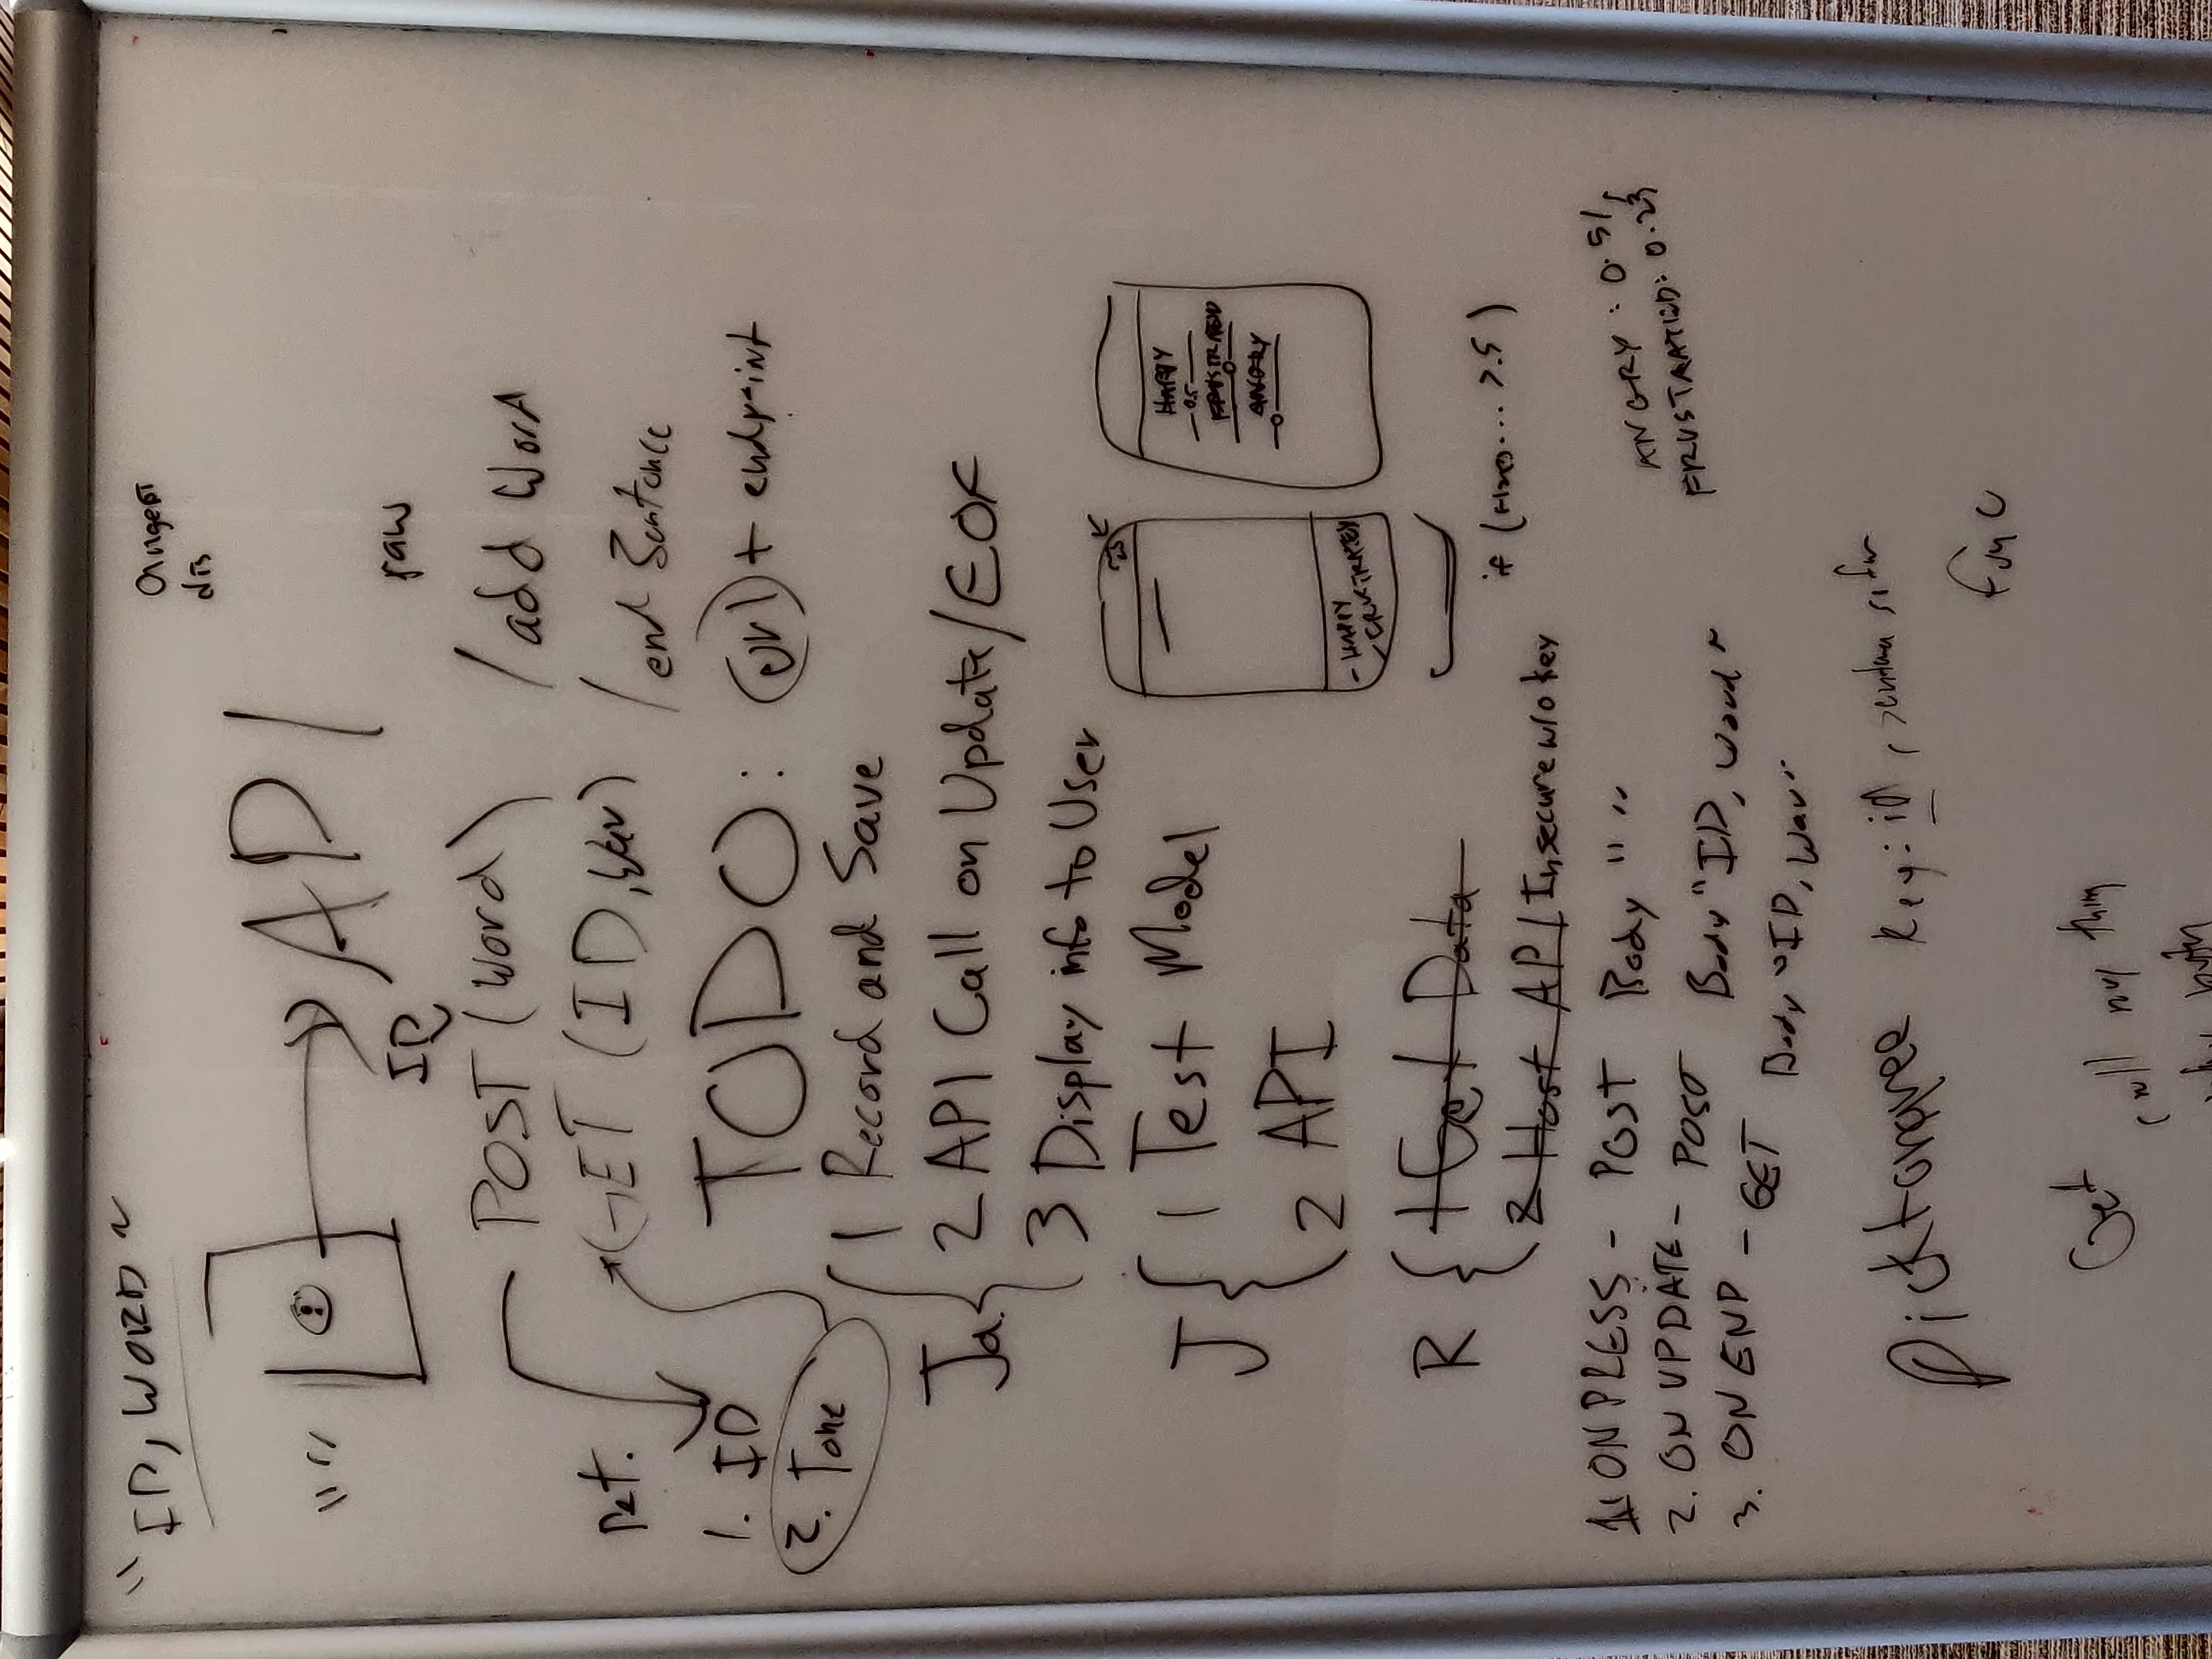 "ID, WORD"
angery
dis
""
API
ID
raw
POST (Word) /add Word
GET (ID, ) /end Sentence
ret.
1. ID
2. Tone
TODO: (url) + endpoint
Ja. 1 Record and Save
2 API Call on Update/EOF
3 Display info to User
J 1 Test Model
2 API
HAPPY
0.5
FRUSTRATED
ANGERY
- HAPPY
FRUSTRATED
if ( .... >.5)
R 1 Get Data
2 Host API Insecure w/o key
1. ON PRESS - POST Body " "
2. ON UPDATE - POST Body "ID, word"
3. ON END - GET Body "ID, War"
ANGRY: 0.51,
FRUSTRATED: 0.23}
Dictionaree key: id, sentence
func
Get
call my thing